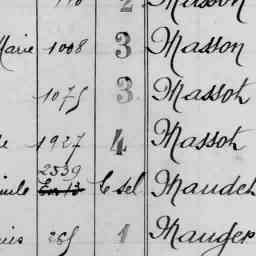 2 Masson
Marie 1008 3 Masson
1075 3 Massot
1927 4 Massot
2539
1 sel Maudet
265 1 Mauger